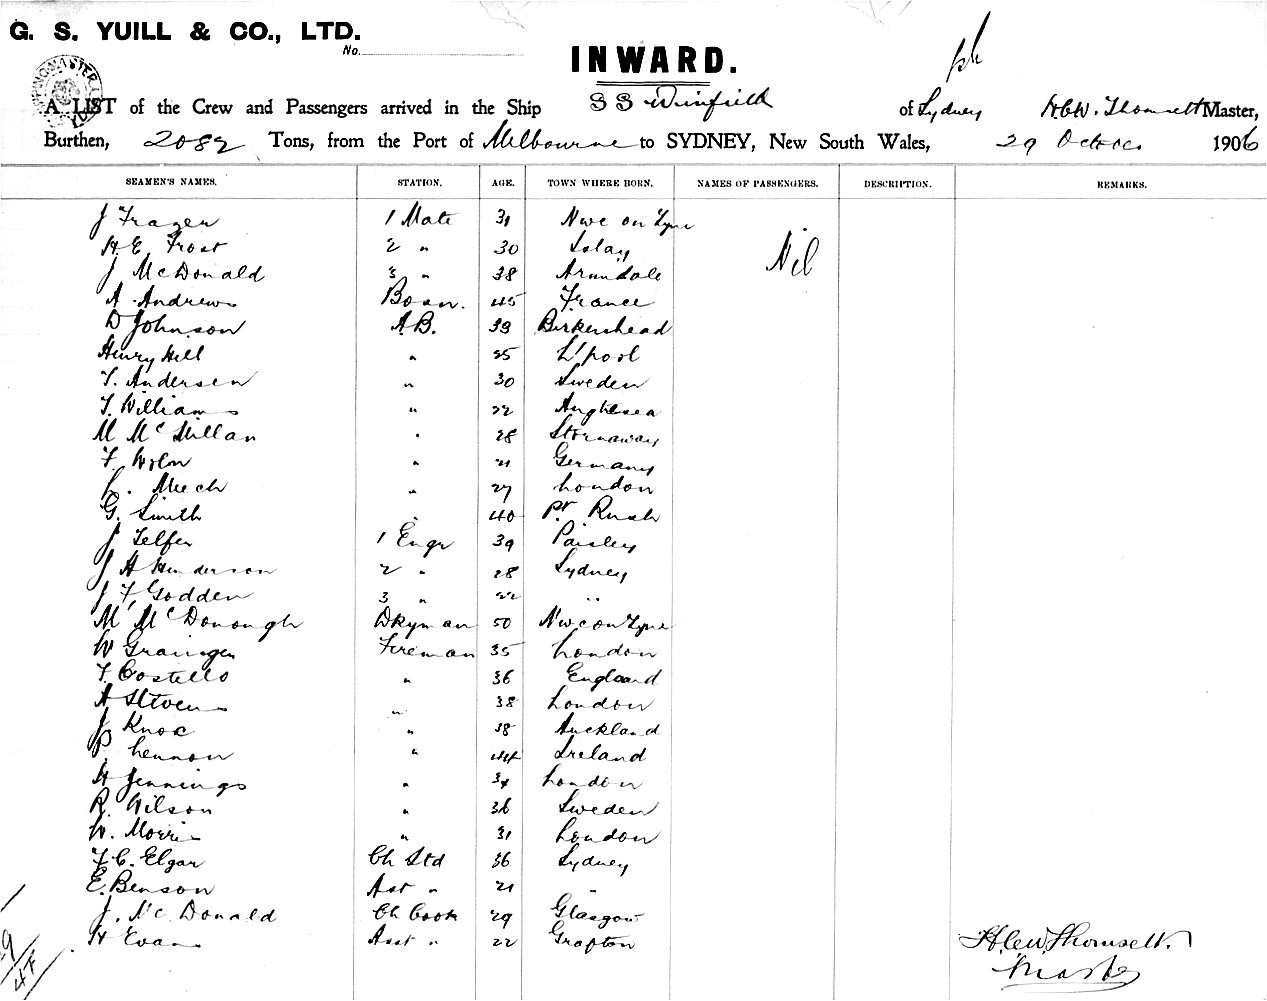 G. S. YUILL & CO., LTD.
No.
INWARD.
A LIST of the Crew and Passengers arrived in the Ship SS Winfield of Sydney H.C.W. Thomsett Master,
Burthen, 2082 Tons, from the Port of Melbourne to SYDNEY, New South Wales, 29 October 1906
SEAMEN'S NAMES. STATION. AGE. TOWN WHERE BORN. NAMES OF PASSENGERS. DESCRIPTION. REMARKS.
J Frazer 1 Mate 31 Nwc on Tyne
H. E. Frost 2 " 30 Islay Nil
J McDonald 3 " 38 Arundale
A. Andrews Bosn. 45 France
D Johnson A.B. 39 Birkenhead
Henry Hill " 25 L'pool
T. Andersen " 30 Sweden
T. Williams " 22 Anglesea
M McMillan " 28 Stornaway
F. " 21 Germany
L. Meech " 27 London
G. Smith " 40 Pt Rush
J Telfer 1 Engr 39 Paisley
J H Henderson 2 " 28 Sydney
J F Godden 3 " 22 "
M McDonough Dkyman 50 Nwc on Tyne
W Grainger Fireman 35 London
T. Costello " 36 England
A Stevens " 38 London
J Knox " 38 Auckland
P Lennon " 44 Ireland
H Jennings " 34 London
R. Wilson " 36 Sweden
W. Morris " 31 London
F. C. Elgar Ch Std 36 Sydney
E. Benson Asst " 21 "
J. McDonald Ch Cook 29 Glasgow
H Evans Asst " 22 Grafton
H.C.W. Thomsett.
Master